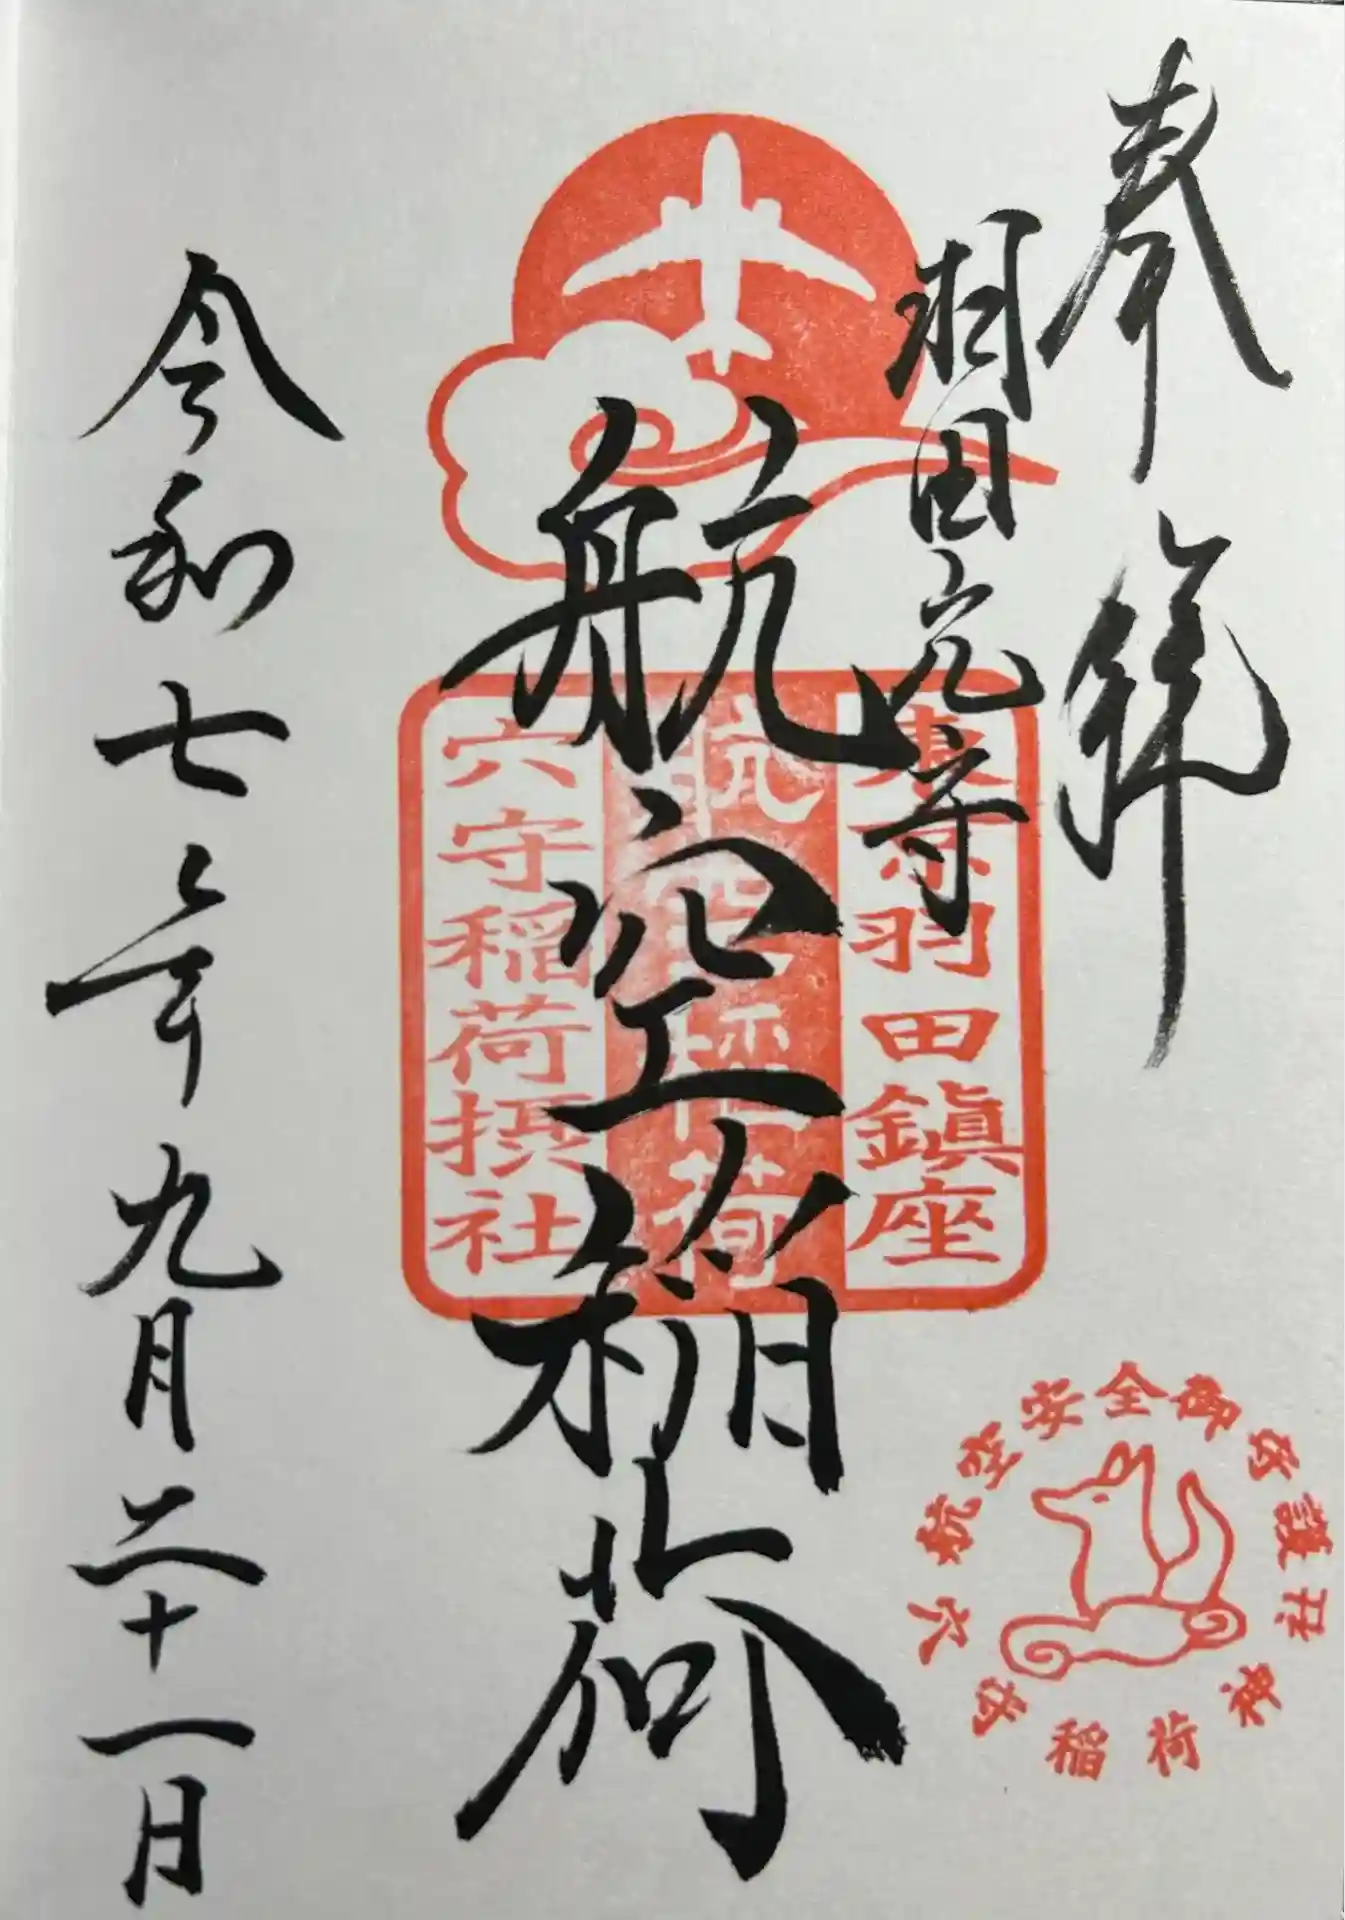 奉拝
羽田穴守
航空稲荷
令和七年九月二十一日
東京羽田鎮座
航空稲荷
六守稲荷摂社
航空安全御守護
稲荷神社